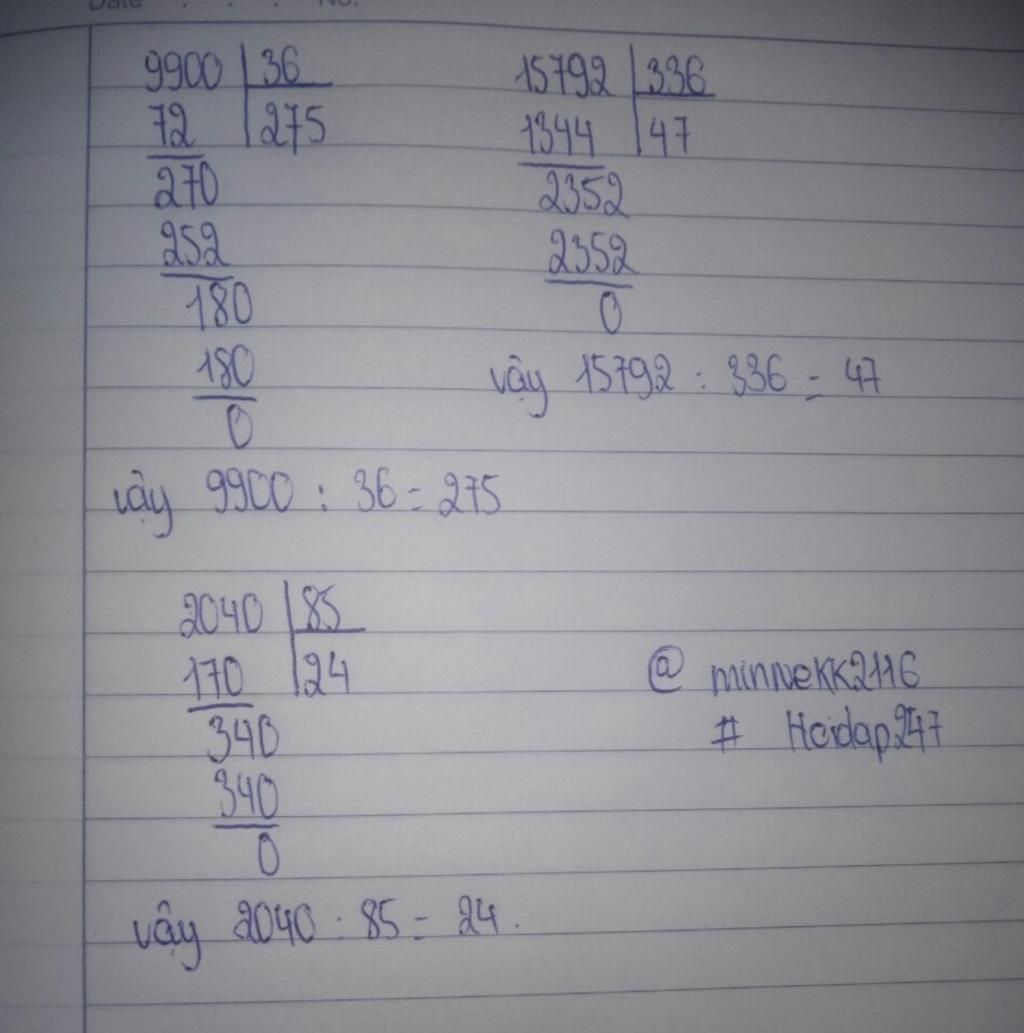 Date . . . No.
9900 | 36
72 | 275
270
252
180
180
0
vậy 9900 : 36 = 275
15792 | 336
1344 | 47
2352
2352
0
vậy 15792 : 336 = 47
2040 | 85
170 | 24
340
340
0
vậy 2040 : 85 = 24.
@ minnekk2116
# Hoidap247